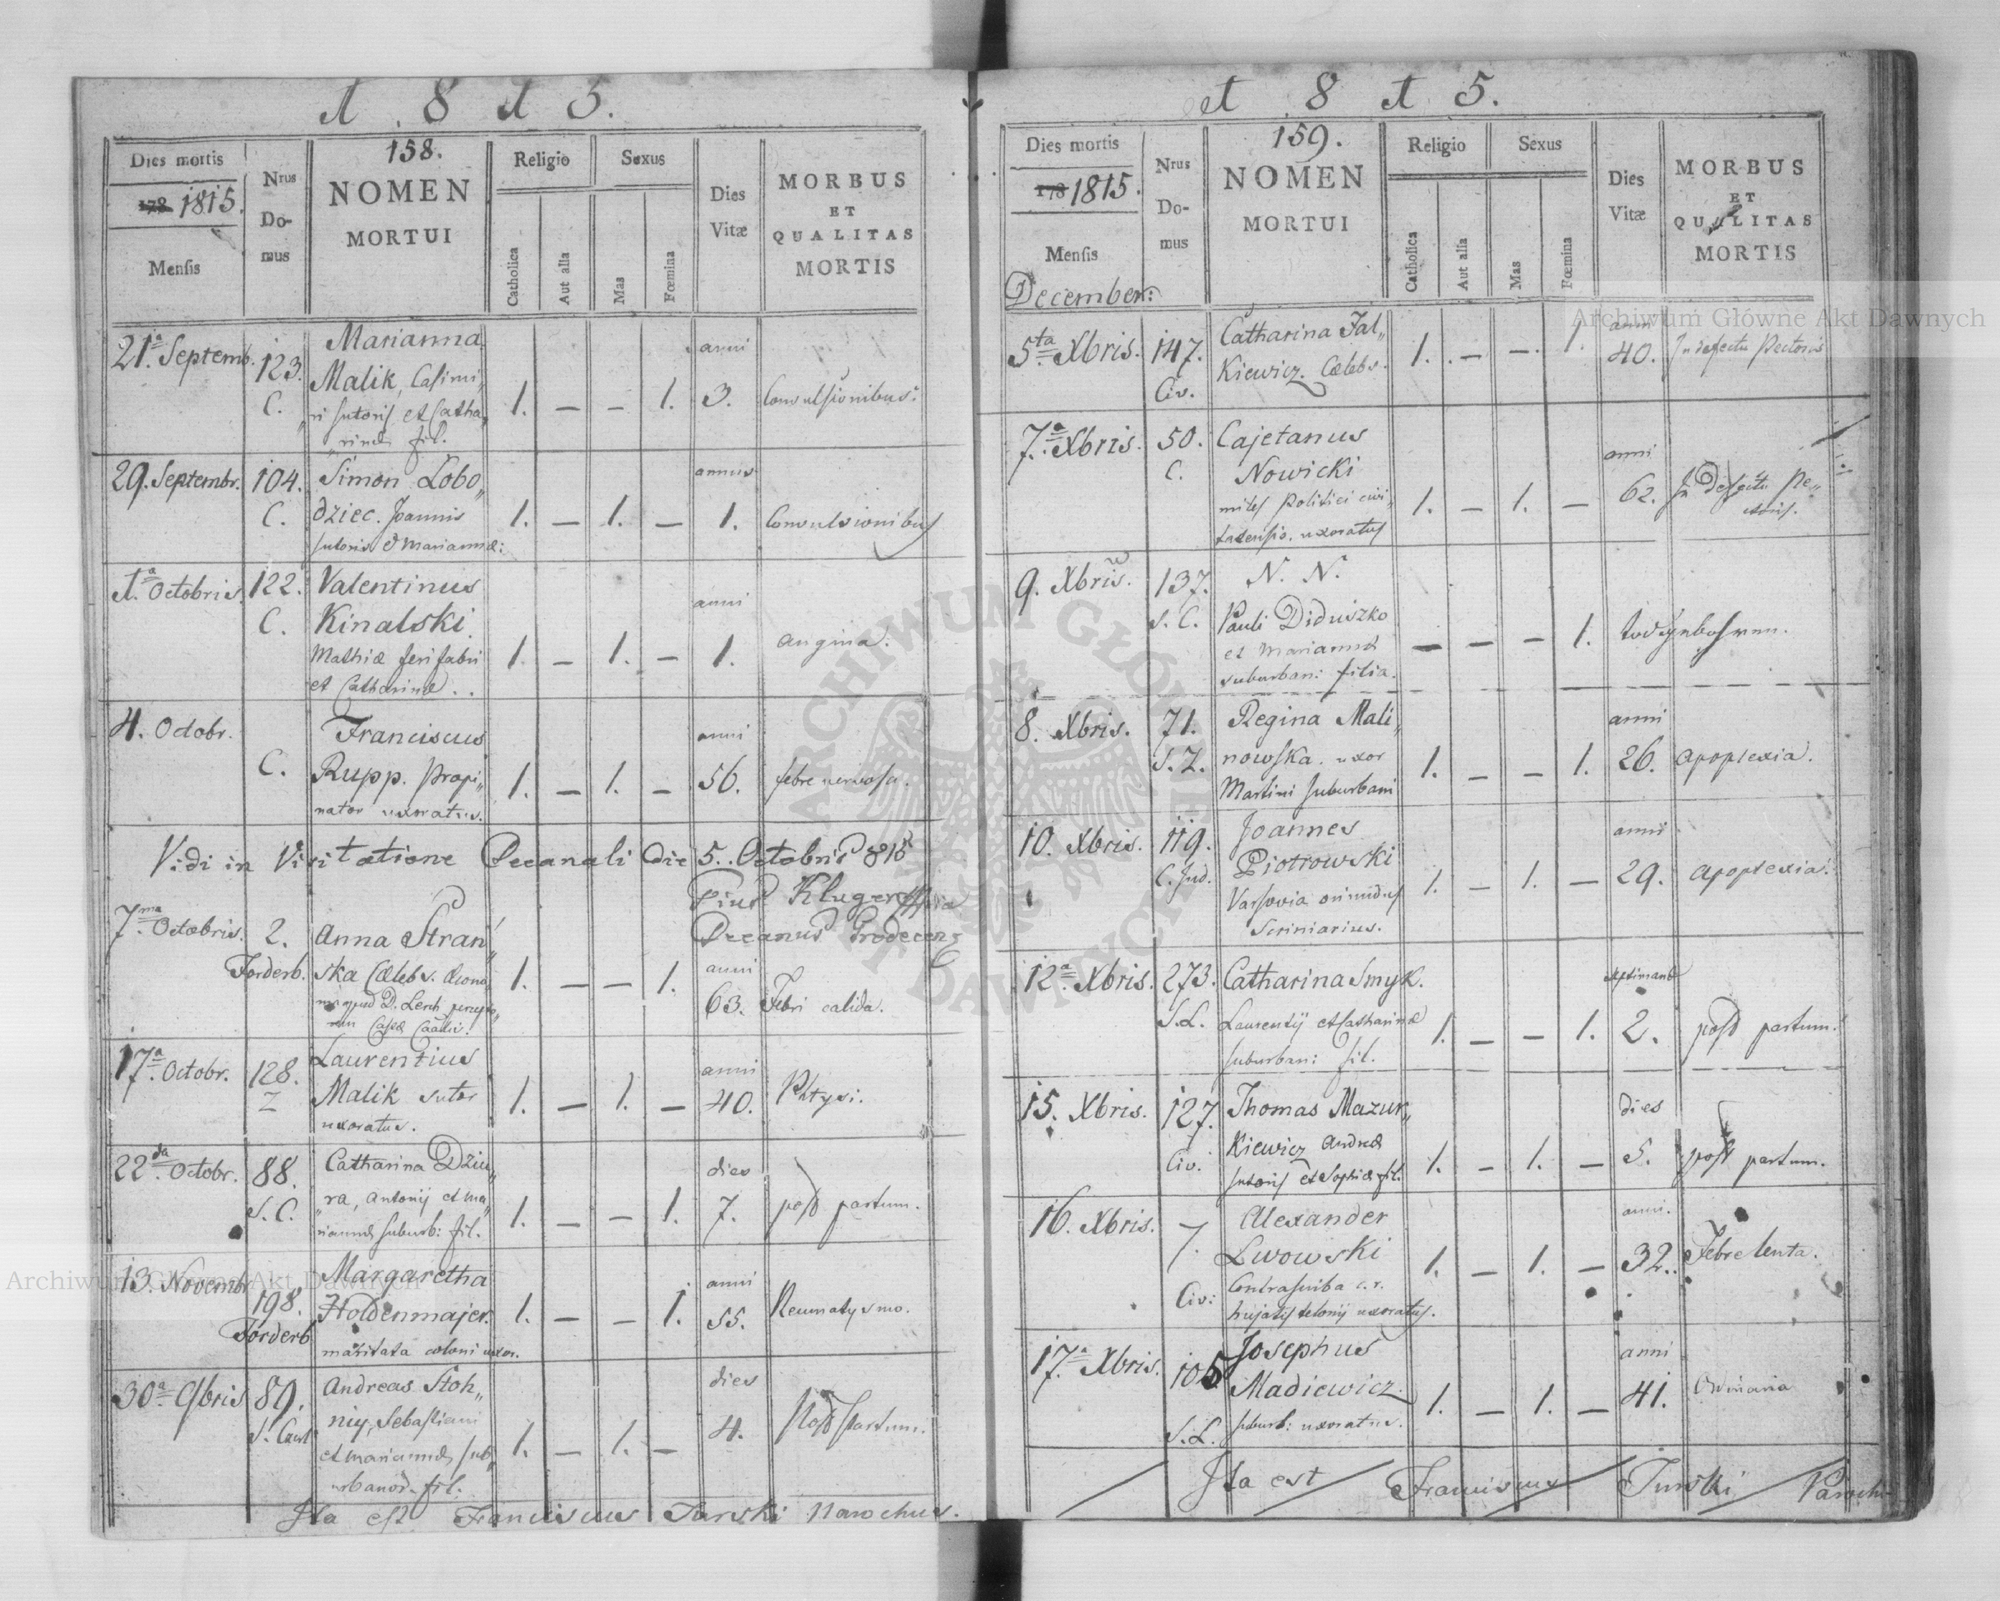 1 8 1 5.
Dies mortis
178 1815.
Mensis
Nrus
Do-
mus
158.
NOMEN
MORTUI
Religio
Catholica
Aut alia
Sexus
Mas
Fœmina
Dies
Vitæ
MORBUS
ET
QUALITAS
MORTIS
21.a Septemb. 123. C.
Marianna
Malik, Casimi„
ri sutoris et Catha„
rinæ fil.
1. — — 1.
anni
3.
Convulsionibus.
29. Septembr. 104. C.
Simon Lobo„
dziec. Joannis
sutoris & Mariannæ:
1. — 1. —
annus
1.
Convulsionibus
1.a Octobris. 122. C.
Valentinus
Kinalski.
Mathiæ ferifabri
et Catharinæ..
1. — 1. —
anni
1.
angina.
4. Octobr. C.
Franciscus
Rupp. propi„
nator uxoratus.
1. — 1. —
anni
56.
febre nervosa.
Vidi in Visitatione Decanali Die 5. Octobris 815
Pius Kluger
Decanus Grodecens
7.ma Octobris. 2. Forderb.
Anna Stran„
ska Cælebs.
1. — — 1.
anni
63.
Febri calida.
17.a Octobr. 128. Z
Laurentius
Malik sutor
uxoratus.
1. — 1. —
anni
40.
Phtysi.
22.da Octobr. 88. S. C.
Catharina Dziu„
ra, Antonij et Ma„
riannæ suburb: fil.
1. — — 1.
dies
7.
post partum.
13. Novembr 198. Forderb
Margaretha
Holdenmajer.
maritata coloni uxor.
1. — — 1.
anni
55.
Reumatysmo.
30.a 9bris 89.
Andreas Stoh„
niy, Sebastiani
et Mariannæ sub„
urbanor. fil.
1. — 1. —
dies
4.
Post partum.
Ita est Franciscus Turski Parochus.
1 8 1 5.
Dies mortis
178 1815.
Mensis
December:
Nrus
Do-
mus
159.
NOMEN
MORTUI
Religio
Catholica
Aut alia
Sexus
Mas
Fœmina
Dies
Vitæ
MORBUS
ET
QUALITAS
MORTIS
5ta Xbris. 147. Civ.
Catharina Fal„
kiewicz. Cælebs.
1. — — 1.
anni
40.
In defectu Pectoris
7.a Xbris. 50. C.
Cajetanus
Nowicki
miles Politici civi„
tatensis. uxoratus
1. — 1. —
anni
62.
In Defectu Pe„
ctoris.
9. Xbris. 137. S. C.
N. N.
Pauli Diduszko
et Mariannæ
suburban: filia.
— — — 1.
todtgebohren.
8. Xbris. 71. S. Z.
Regina Mali„
nowska. uxor
Martini suburbani
1. — — 1.
anni
26.
apoplexia.
10. Xbris. 119. C. Jud.
Joannes
Piotrowski
Varsovia oriundus
Scriniarius.
1. — 1. —
anni
29.
apoplexia.
12.a Xbris. 273. S. L.
Catharina Smyk.
Laurentij et Catharinæ
suburban: fil.
1. — — 1.
2.
post partum.
15. Xbris. 127. Civ.
Thomas Mazur„
kiewicz Andreæ
sutoris et Sophiæ fil.
1. — 1. —
dies
5.
post partum.
16. Xbris. 7. Civ:
Alexander
Lwowski
Contrascriba c. r.
hujatis telonij uxoratus.
1. — 1. —
anni.
32.
Febre lenta.
17.a Xbris. 105 S. L.
Josephus
Madiewicz.
suburb: uxoratus.
1. — 1. —
anni
41.
Ordinaria
Ita est Franciscus Turski Paroch
Archiwum Główne Akt Dawnych
Archiwum Główne Akt Dawnych
ARCHIWUM GŁÓWNE AKT DAWNYCH